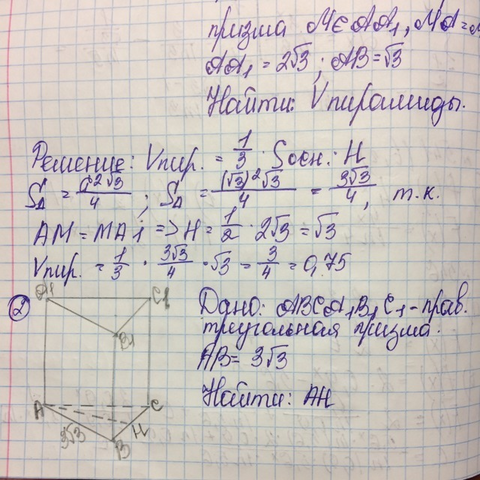 призма M∈AA₁, MA=
AA₁ = 2√3; AB=√3
Найти: Vпирамиды.
Решение: Vпир. = 1/3 · Sосн. · H
S△ = a²√3/4 ; S△ = (√3)²√3/4 = 3√3/4, т.к.
AM = MA₁ => H = 1/2 · 2√3 = √3
Vпир. = 1/3 · 3√3/4 · √3 = 3/4 = 0,75
② Дано: ABCA₁B₁C₁ - прав.
треугольная призма.
AB = 3√3
Найти: AH
A₁ C₁
B₁
A C
3√3 H
B